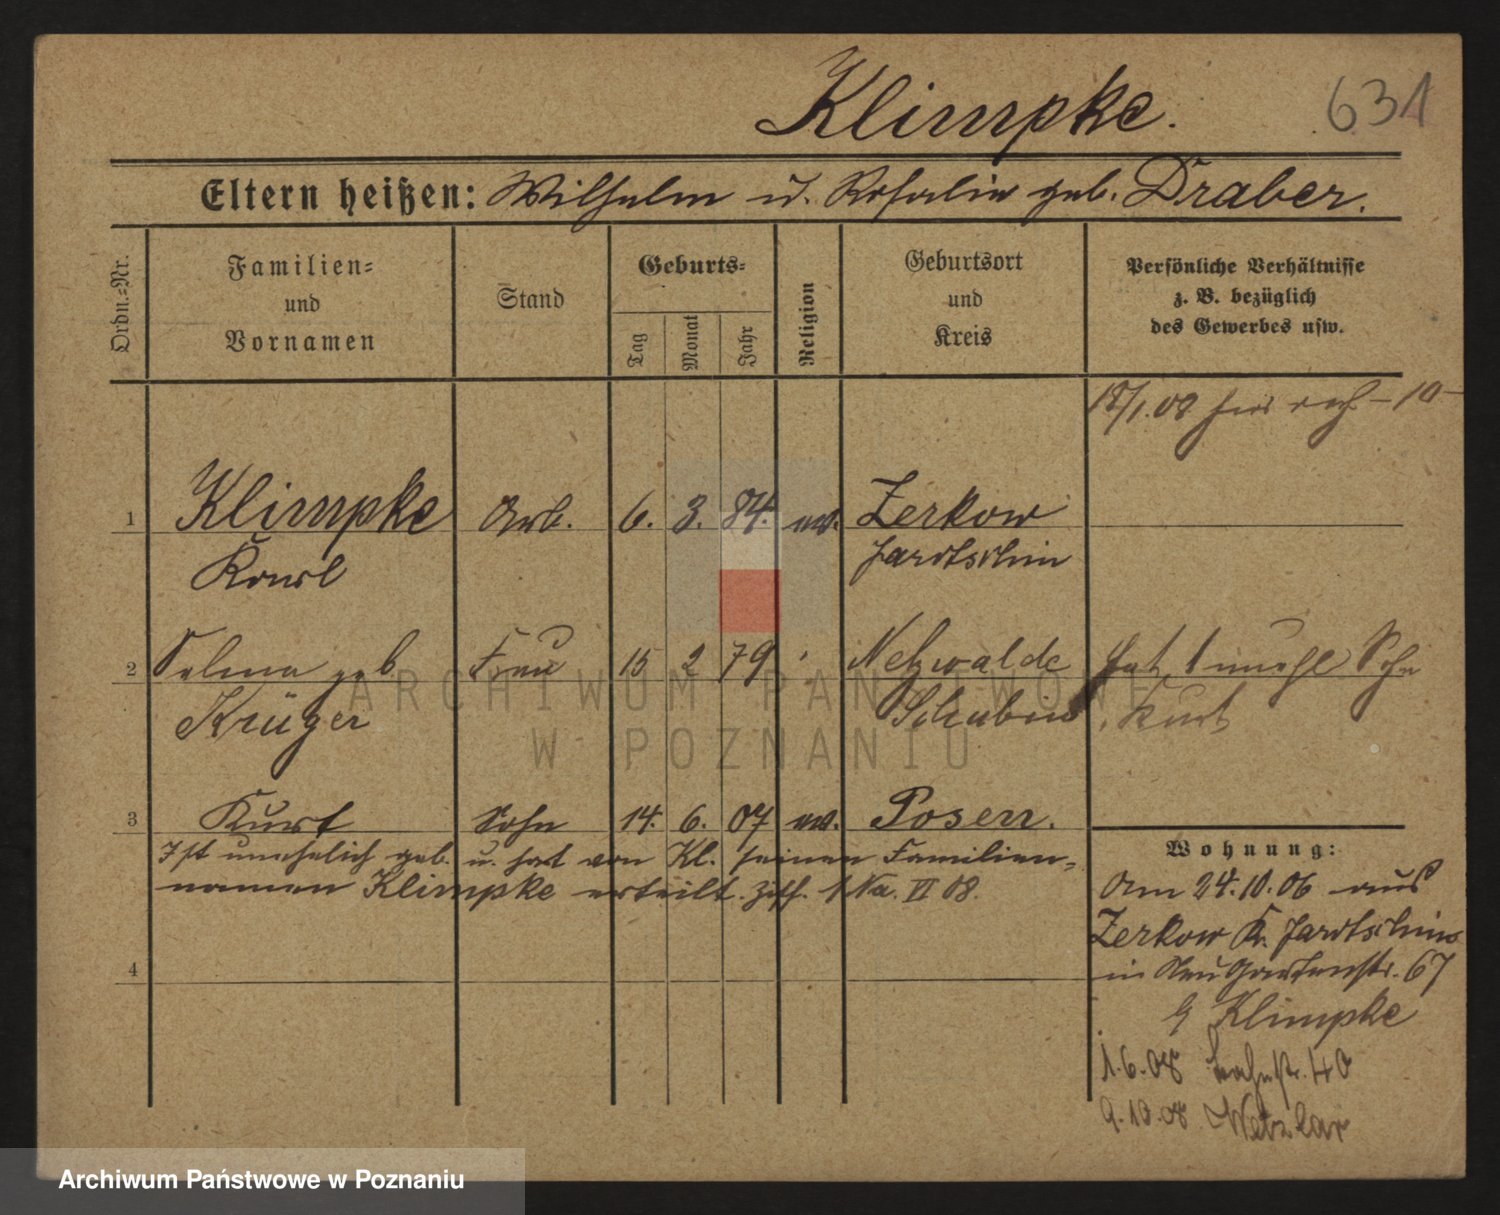 Klimpke. 631
Eltern heißen: Wilhelm u. Rosalie geb. Draber.
Ordn.-Nr.
Familien-
und
Vornamen
Stand
Geburts-
Tag
Monat
Jahr
Religion
Geburtsort
und
Kreis
Persönliche Verhältnisse
z. B. bezüglich
des Gewerbes usw.
18/1.08 - 10 -
1 Klimpke Arb. 6. 3. 84. ev. Zerkow
Karl Jarotschin
2 Selma geb Frau 15 2 79 Netzwalde hat 1 unehl Sohn
Krüger Schubin Kurt
3 Kurt Sohn 14. 6. 07 ev. Posen.
Ist unehelich geb. u. hat von Kl. seinen Familien-
namen Klimpke erteilt. 1 VI 08.
4
Wohnung:
Am 24.10.06 aus
Zerkow Kr. Jarotschin
in Neu Gartenstr. 67
Klimpke
1.6.08 40
9.10.08 Wetzlar
ARCHIWUM PAŃSTWOWE
W POZNANIU
Archiwum Państwowe w Poznaniu